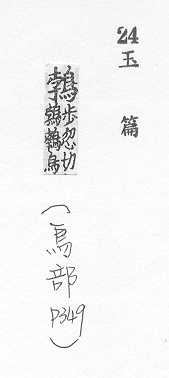 24
玉篇
鵓
步忽切
鵓鳥
（鳥部P349）